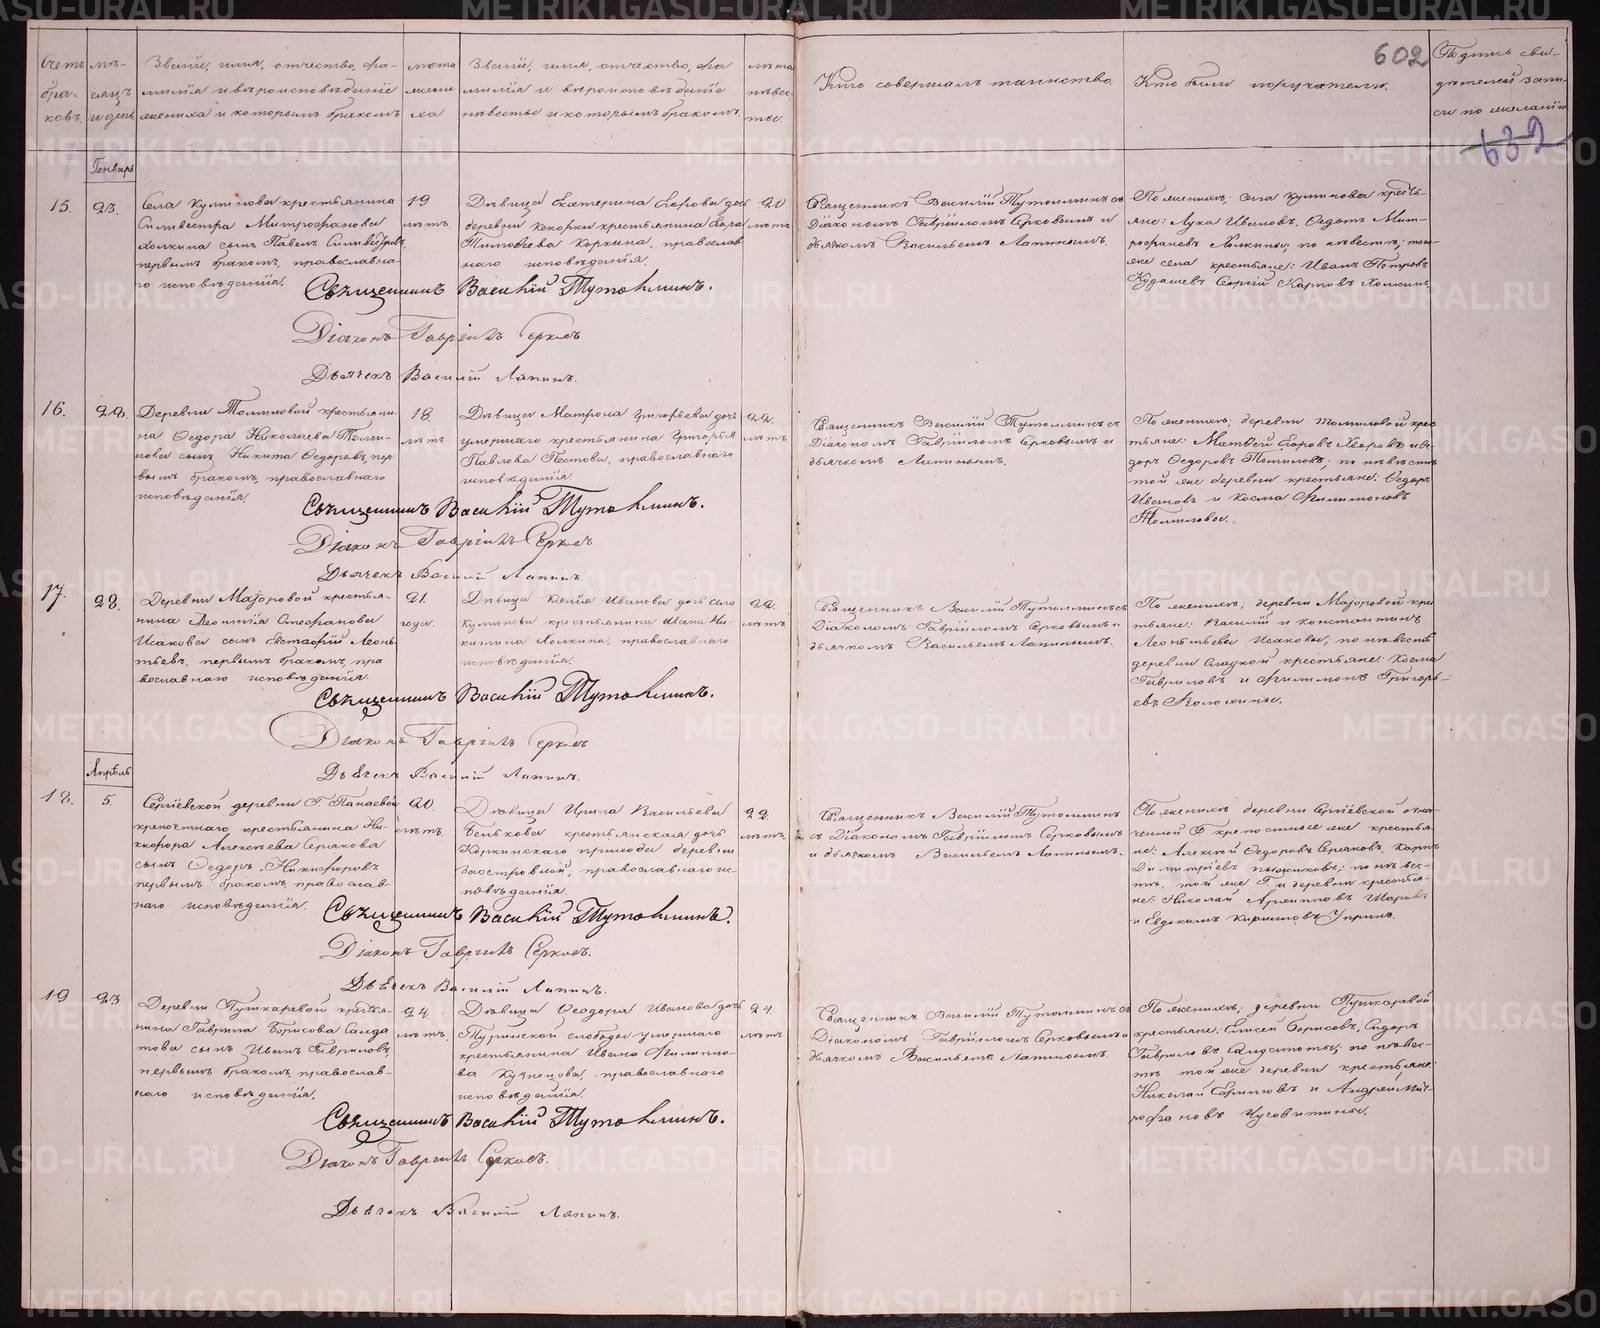 602
632
Счетъ браковъ.
Мѣсяцъ и день
Званіе, имя, отчество, фа-
милія и вѣроисповѣданіе
жениха и которымъ бракомъ
лѣта жени ха
Званіе, имя, отчество, фа
милія и вѣроисповѣданіе
невѣсты и которымъ бракомъ.
лѣта невѣс ты.
Кто совершалъ таинство.
Кто были поручители.
Подпись сви-
дѣтелей запи-
си по желанію
Генварь
15.
23.
Села Куминова крестьянина
Силивестра Митрофанова
сынъ Павелъ Силивестровъ,
первымъ бракомъ, православна-
го исповѣданія.
19
лѣтъ.
Дѣвица Екатерина Егорова дочь
деревни крестьянина Егора
Тимофѣева Коркина, православ
наго исповѣданія.
20
лѣтъ
Священникъ Василій Тутолминъ съ
Діакономъ Гавріиломъ Серковымъ и
дьячкомъ Василіемъ Лапинымъ.
По женихѣ; села Куминова кресть-
яне: Лука Ивановъ, Федотъ Мит-
рофановъ по невѣстѣ; той-
же села крестьяне: Иванъ Петровъ
Кудашевъ Сергій Карповъ
Священникъ Василій Тутолминъ.
Діаконъ Гавріилъ Серковъ
Дьячекъ Василій Лапинъ.
16.
28.
Деревни Томиловой крестьяни-
на Федора Николаева Томи-
лова сынъ Никита Федоровъ, пер
вымъ бракомъ, православнаго
исповѣданія.
18.
лѣтъ
Дѣвица Матрона Григорьева дочь
умершаго крестьянина Григорья
Павлова Пестова, православнаго
исповѣданія.
22.
лѣтъ.
Священникъ Василій Тутолминъ съ
Діакономъ Гавріиломъ Серковымъ и
дьячкомъ Лапинымъ.
По женихѣ; деревни Томиловой крес
тьяне: Матвей Егоровъ Фе-
доръ Федоровъ Томиловъ; по невѣстѣ
той же деревни крестьяне: Федоръ
Ивановъ и Косма Филимоновъ
Томиловы.
Священникъ Василій Тутолминъ.
Діаконъ Гавріилъ Серковъ
Дьячекъ Василій Лапинъ.
17.
28.
Деревни Маіоровой крестья-
нина Леонтія Стефанова
Исакова сынъ Евстафій Леонь-
тьевъ, первымъ бракомъ, пра
вославнаго исповѣданія.
21.
года.
Дѣвица Ксенія Иванова дочь села
Куминова крестьянина Ивана Ни-
китина православнаго
исповѣданія.
22.
лѣтъ.
Священникъ Василій Тутолминъ съ
Діакономъ Гавріиломъ Серковымъ и
дьячкомъ Василіемъ Лапинымъ.
По женихѣ; деревни Маіоровой крес
тьяне: Василій и Константинъ
Леонтьевы Исаковы, по невѣстѣ
деревни Сладкой крестьяне: Косма
Гавриловъ и Филимонъ Григорь-
евъ
Священникъ Василій Тутолминъ.
Діаконъ Гавріилъ Серковъ
Дьячекъ Василій Лапинъ.
Апрѣль
18.
5.
Сергіевской деревни Г. Панаевой
крепостнаго крестьянина Ни-
кифора Алексѣева Серякова
сынъ Федоръ Никифоровъ
первымъ бракомъ, православ-
наго исповѣданія.
20.
лѣтъ.
Дѣвица Ирина Васильева
Белькова крестьянская дочь
Коркинскаго прихода деревни
Заостровной, православнаго ис-
повѣданія.
22.
лѣтъ.
Священникъ Василій Тутолминъ
съ Діакономъ Гавріиломъ Серковымъ
и дьячкомъ Василіемъ Лапинымъ.
По женихѣ деревни Сергіевской озна-
ченной Г. крепостные же крестья-
не: Алексѣй Федоровъ Серяковъ, Карпъ
Дмитріевъ по невѣс-
тѣ, той же Г. и деревни крестья-
не: Николай Архиповъ Шаровъ
и Евдокимъ Кириловъ Упринъ.
Священникъ Василій Тутолминъ.
Діаконъ Гавріилъ Серковъ.
Дьячекъ Василій Лапинъ.
19
23.
Деревни Пушкаревой крестья-
нина Гаврила Борисова Салда
това сынъ Иванъ Гавриловъ,
первымъ бракомъ, православ-
наго исповѣданія.
24.
лѣтъ.
Дѣвица Феодора Иванова дочь
Туринской слободы умершаго
крестьянина Ивана Филиппо-
ва Кузнецова, православнаго
исповѣданія.
24.
лѣтъ
Священникъ Василій Тутолминъ съ
Діакономъ Гавріиломъ Серковымъ и
дьячкомъ Василіемъ Лапинымъ.
По женихѣ; деревни Пушкаревой
крестьяне: Елисей Борисовъ, Сидоръ
Гавриловъ Салдатовы; по невѣс-
тѣ той же деревни крестьяне
Николай Ефимовъ и Андрей Мит-
рофановъ Чусовитины.
Священникъ Василій Тутолминъ.
Діаконъ Гавріилъ Серковъ.
Дьячекъ Василій Лапинъ.
METRIKI.GASO-URAL.RU